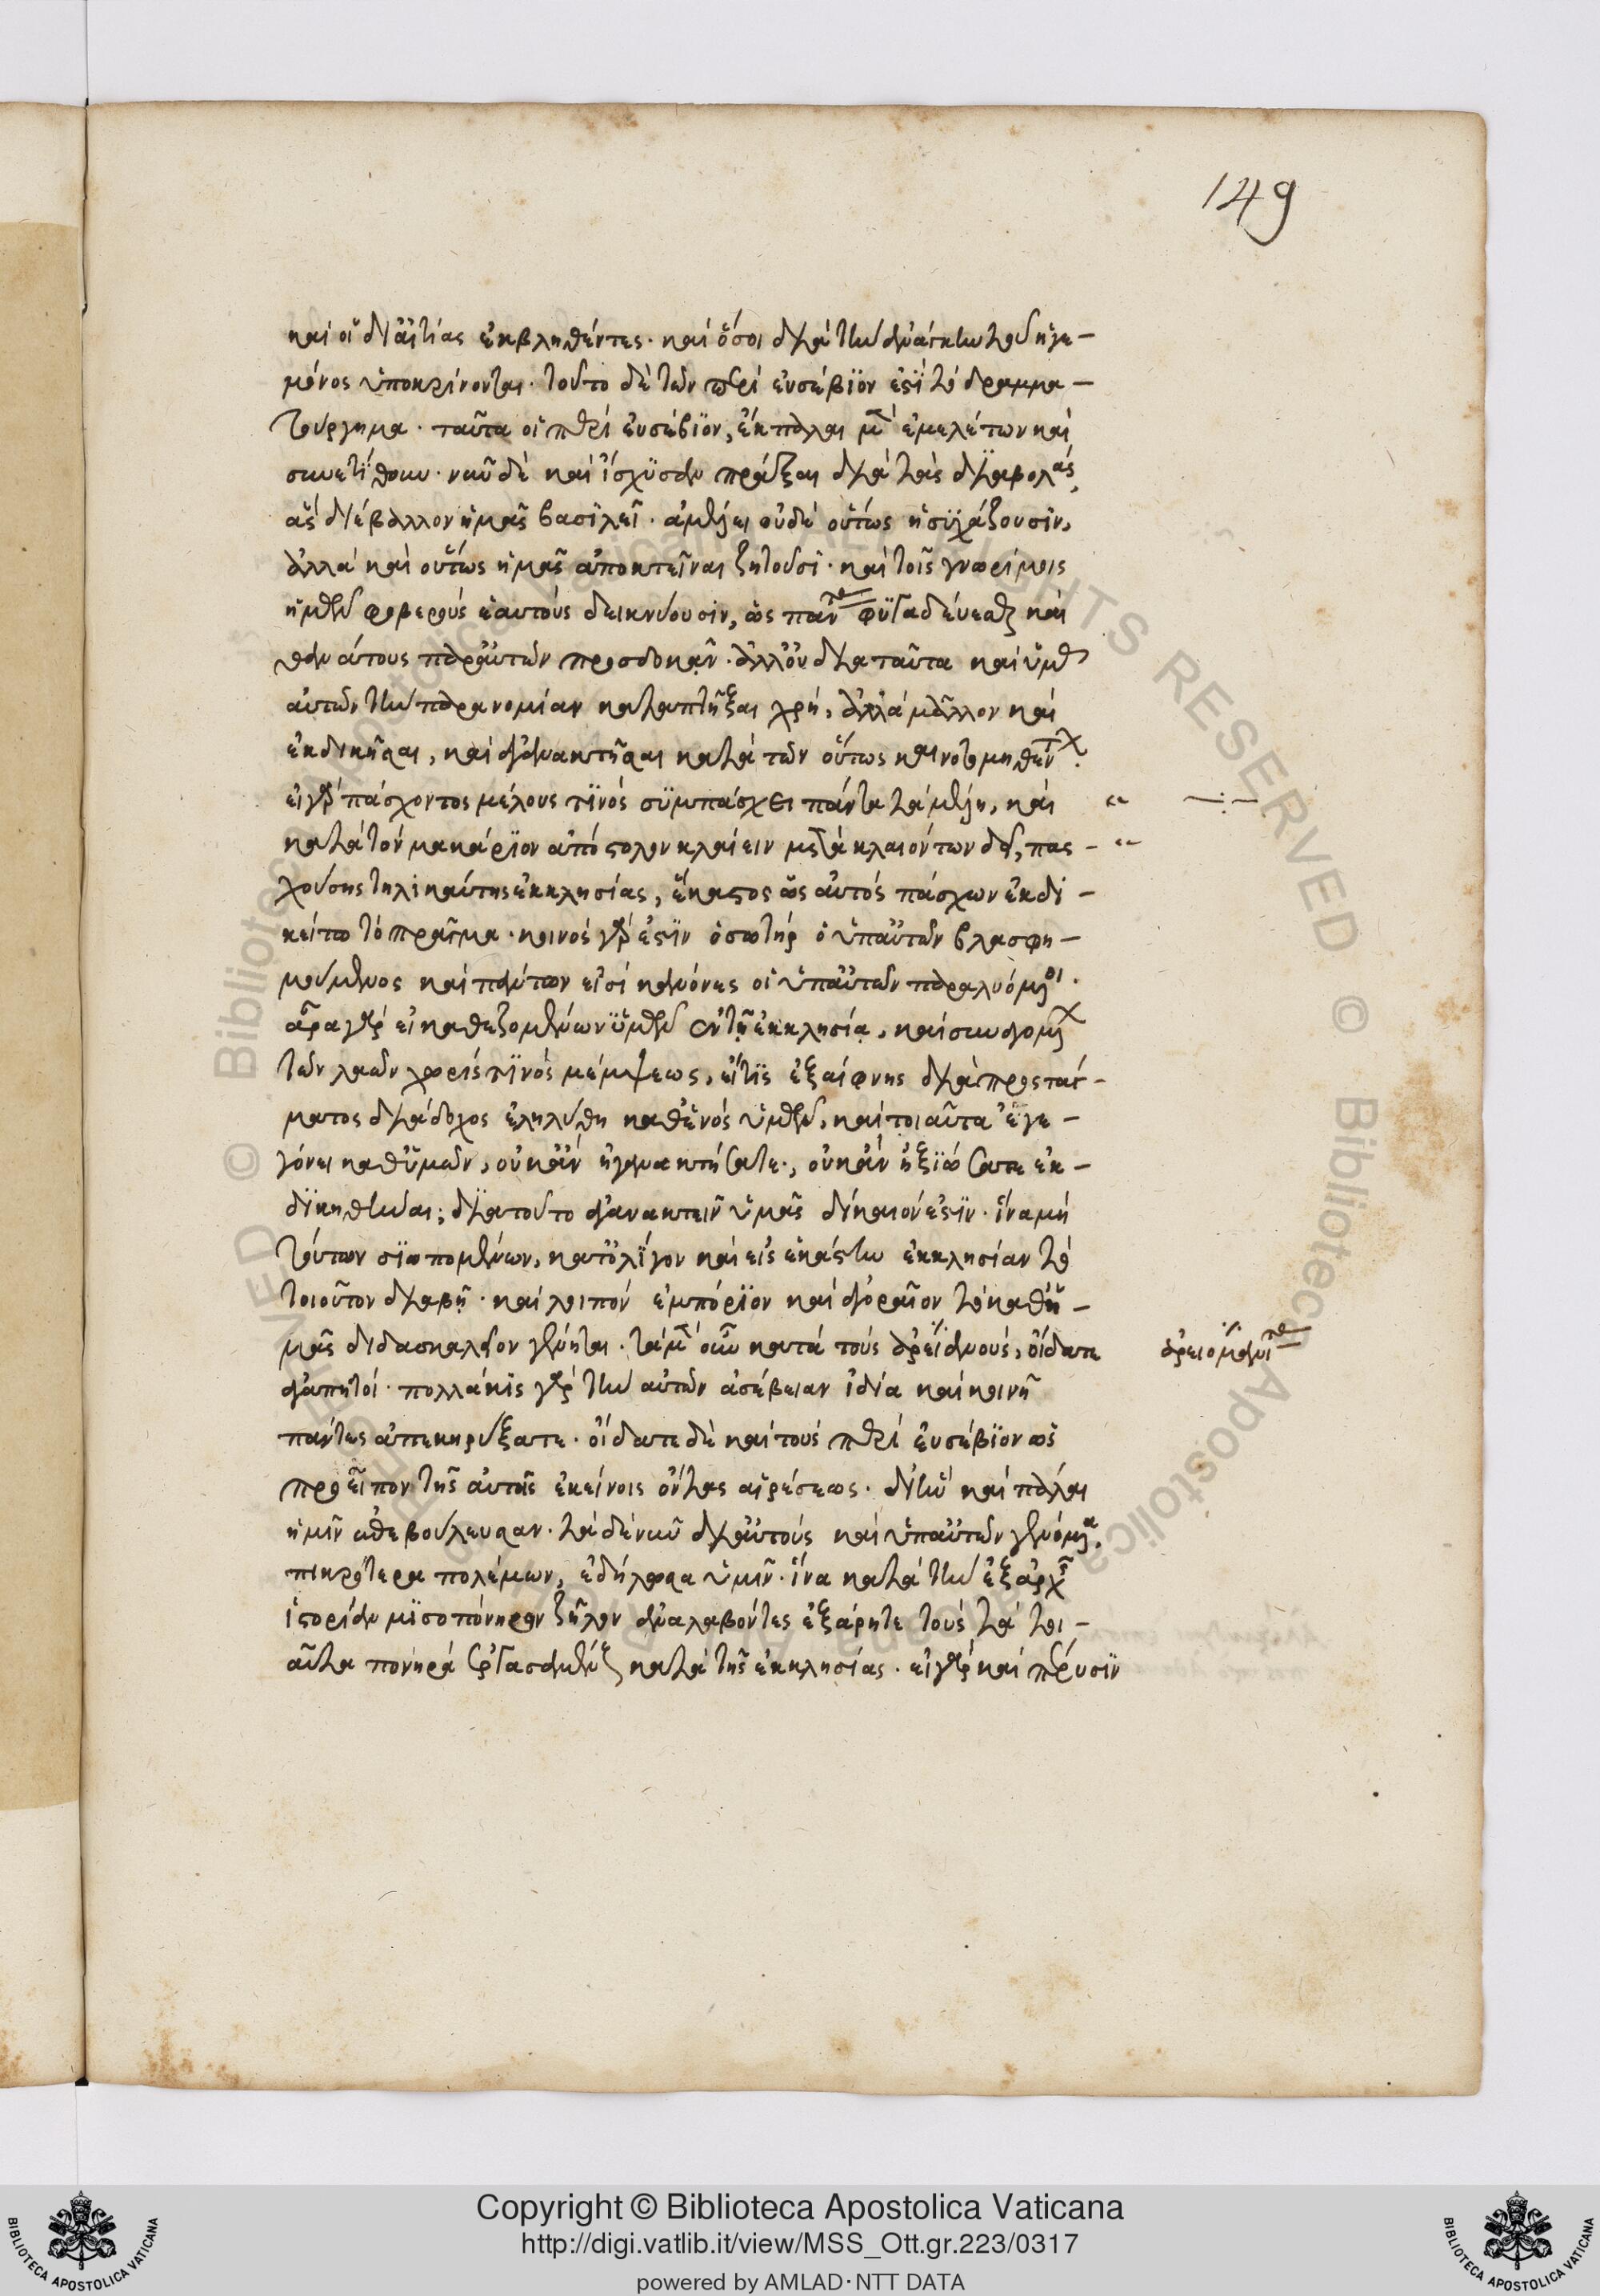 149
καὶ οἱ δι' αἰτίας ἐκβληθέντες· καὶ ὅσοι διὰ τὴν ἀνάγκην τοῦ ἡγε-
μόνος ὑποκρίνονται· τοῦτο δὲ τῶν περὶ εὐσέβϊον ἐστὶ τὸ δραμμα-
τούργημα· ταῦτα οἱ περὶ εὐσέβϊον, ἔκπαλαι μὲν ἐμελέτων καὶ
συνετίθουν· νῦν δὲ καὶ ἴσχϋσαν πράξαι διὰ τὰς διαβολὰς,
ἃς διέβαλλον ἡμᾶς βασιλεῖ· ἀμέλει οὐδὲ οὕτως ἡσϋχάζουσϊν,
ἀλλὰ καὶ οὕτως ἡμᾶς ἀποκτεῖναι ζητοῦσι· καὶ τοῖς γνωρίμοις
ἡμῶν φοβεροὺς ἑαυτοὺς δεικνύουσιν, ὡς πάντας φϋγαδεύεσθαι καὶ
θανάτους παρ' αὐτῶν προσδοκᾷν· ἀλλ' οὐ διὰ ταῦτα καὶ ὑμᾶς
αὐτῶν τὴν παρανομίαν καταπτῆξαι χρή, ἀλλὰ μᾶλλον καὶ
ἐκδικῆσαι, καὶ ἀγανακτῆσαι κατὰ τῶν οὕτως καινοτομηθέντων.
εἰ γὰρ πάσχοντος μέλους τϊνὸς σϋμπάσχει πάντα τὰ μέλη, καὶ
κατὰ τὸν μακάρϊον ἀπόστολον κλαίειν μετὰ κλαιόντων δεῖ, πασ-
χούσης τηλικαύτης ἐκκλησίας, ἕκαστος ὡς αὐτὸς πάσχων ἐκδι-
κείτω τὸ πρᾶγμα· κοινὸς γὰρ ἐστϊν ὁ σωτὴρ ὁ ὑπ' αὐτῶν βλασφη-
μούμενος καὶ πάντων εἰσὶ κανόνες οἱ ὑπ' αὐτῶν παραλυόμενοι.
ἆρα γὰρ εἰ καθεζομένων ὑμῶν ἐν τῇ ἐκκλησίᾳ, καὶ συναγομένων
τῶν λαῶν χωρὶς τϊνὸς μέμψεως, εἴ τϊς ἐξαίφνης διὰ προστάγ-
ματος διάδοχος ἐληλύθη καθ' ἑνὸς ὑμῶν, καὶ τοιαῦτα ἐγε-
γόνει καθ' ὑμῶν, οὐκ ἂν ἠγανακτήσατε, οὐκ ἂν ἠξϊώσατε ἐκ-
δϊκηθῆναι; διὰ τοῦτο ἀγανακτεῖν ὑμᾶς δίκαιόν ἐστϊν· ἵνα μὴ
τούτων σϊωπομένων, κατ' ὀλίγον καὶ εἰς ἑκάστην ἐκκλησίαν τὸ
τοιοῦτον διαβῇ· καὶ λοιπὸν ἐμπόρϊον καὶ ἀγοραῖον τὸ καθ' ἡ-
μᾶς διδασκαλεῖον γένηται· τὰ μὲν οὖν κατὰ τοὺς ἀρειανοὺς, οἴδατε
ἀγαπητοί· πολλάκις γὰρ τὴν αὐτῶν ἀσέβειαν ἰδία καὶ κοινῇ
πάντες ἀπεκηρύξατε· οἴδατε δὲ καὶ τοὺς περὶ εὐσέβϊον ὡς
προεῖπον τῆς αὐτῆς ἐκείνοις ὄντας αἱρέσεως· δι' ἣν καὶ πάλαι
ἡμῖν ἐπεβούλευσαν· τὰ δὲ νῦν δι' αὐτοὺς καὶ ὑπ' αὐτῶν γενόμενα,
πικρότερα πολέμων, ἐδήλωσα ὑμῖν· ἵνα κατὰ τὴν ἐξ ἀρχῆς
ἱστορίαν μϊσοπόνηρον ζῆλον ἀναλαβόντες ἐξάρητε τοὺς τὰ τοι-
αῦτα πονηρὰ ἐργασαμένους κατὰ τῆς ἐκκλησίας· εἰ γὰρ καὶ πέρυσϊν
ἀρειομανίτας
Copyright © Biblioteca Apostolica Vaticana
http://digi.vatlib.it/view/MSS_Ott.gr.223/0317
powered by AMLAD·NTT DATA